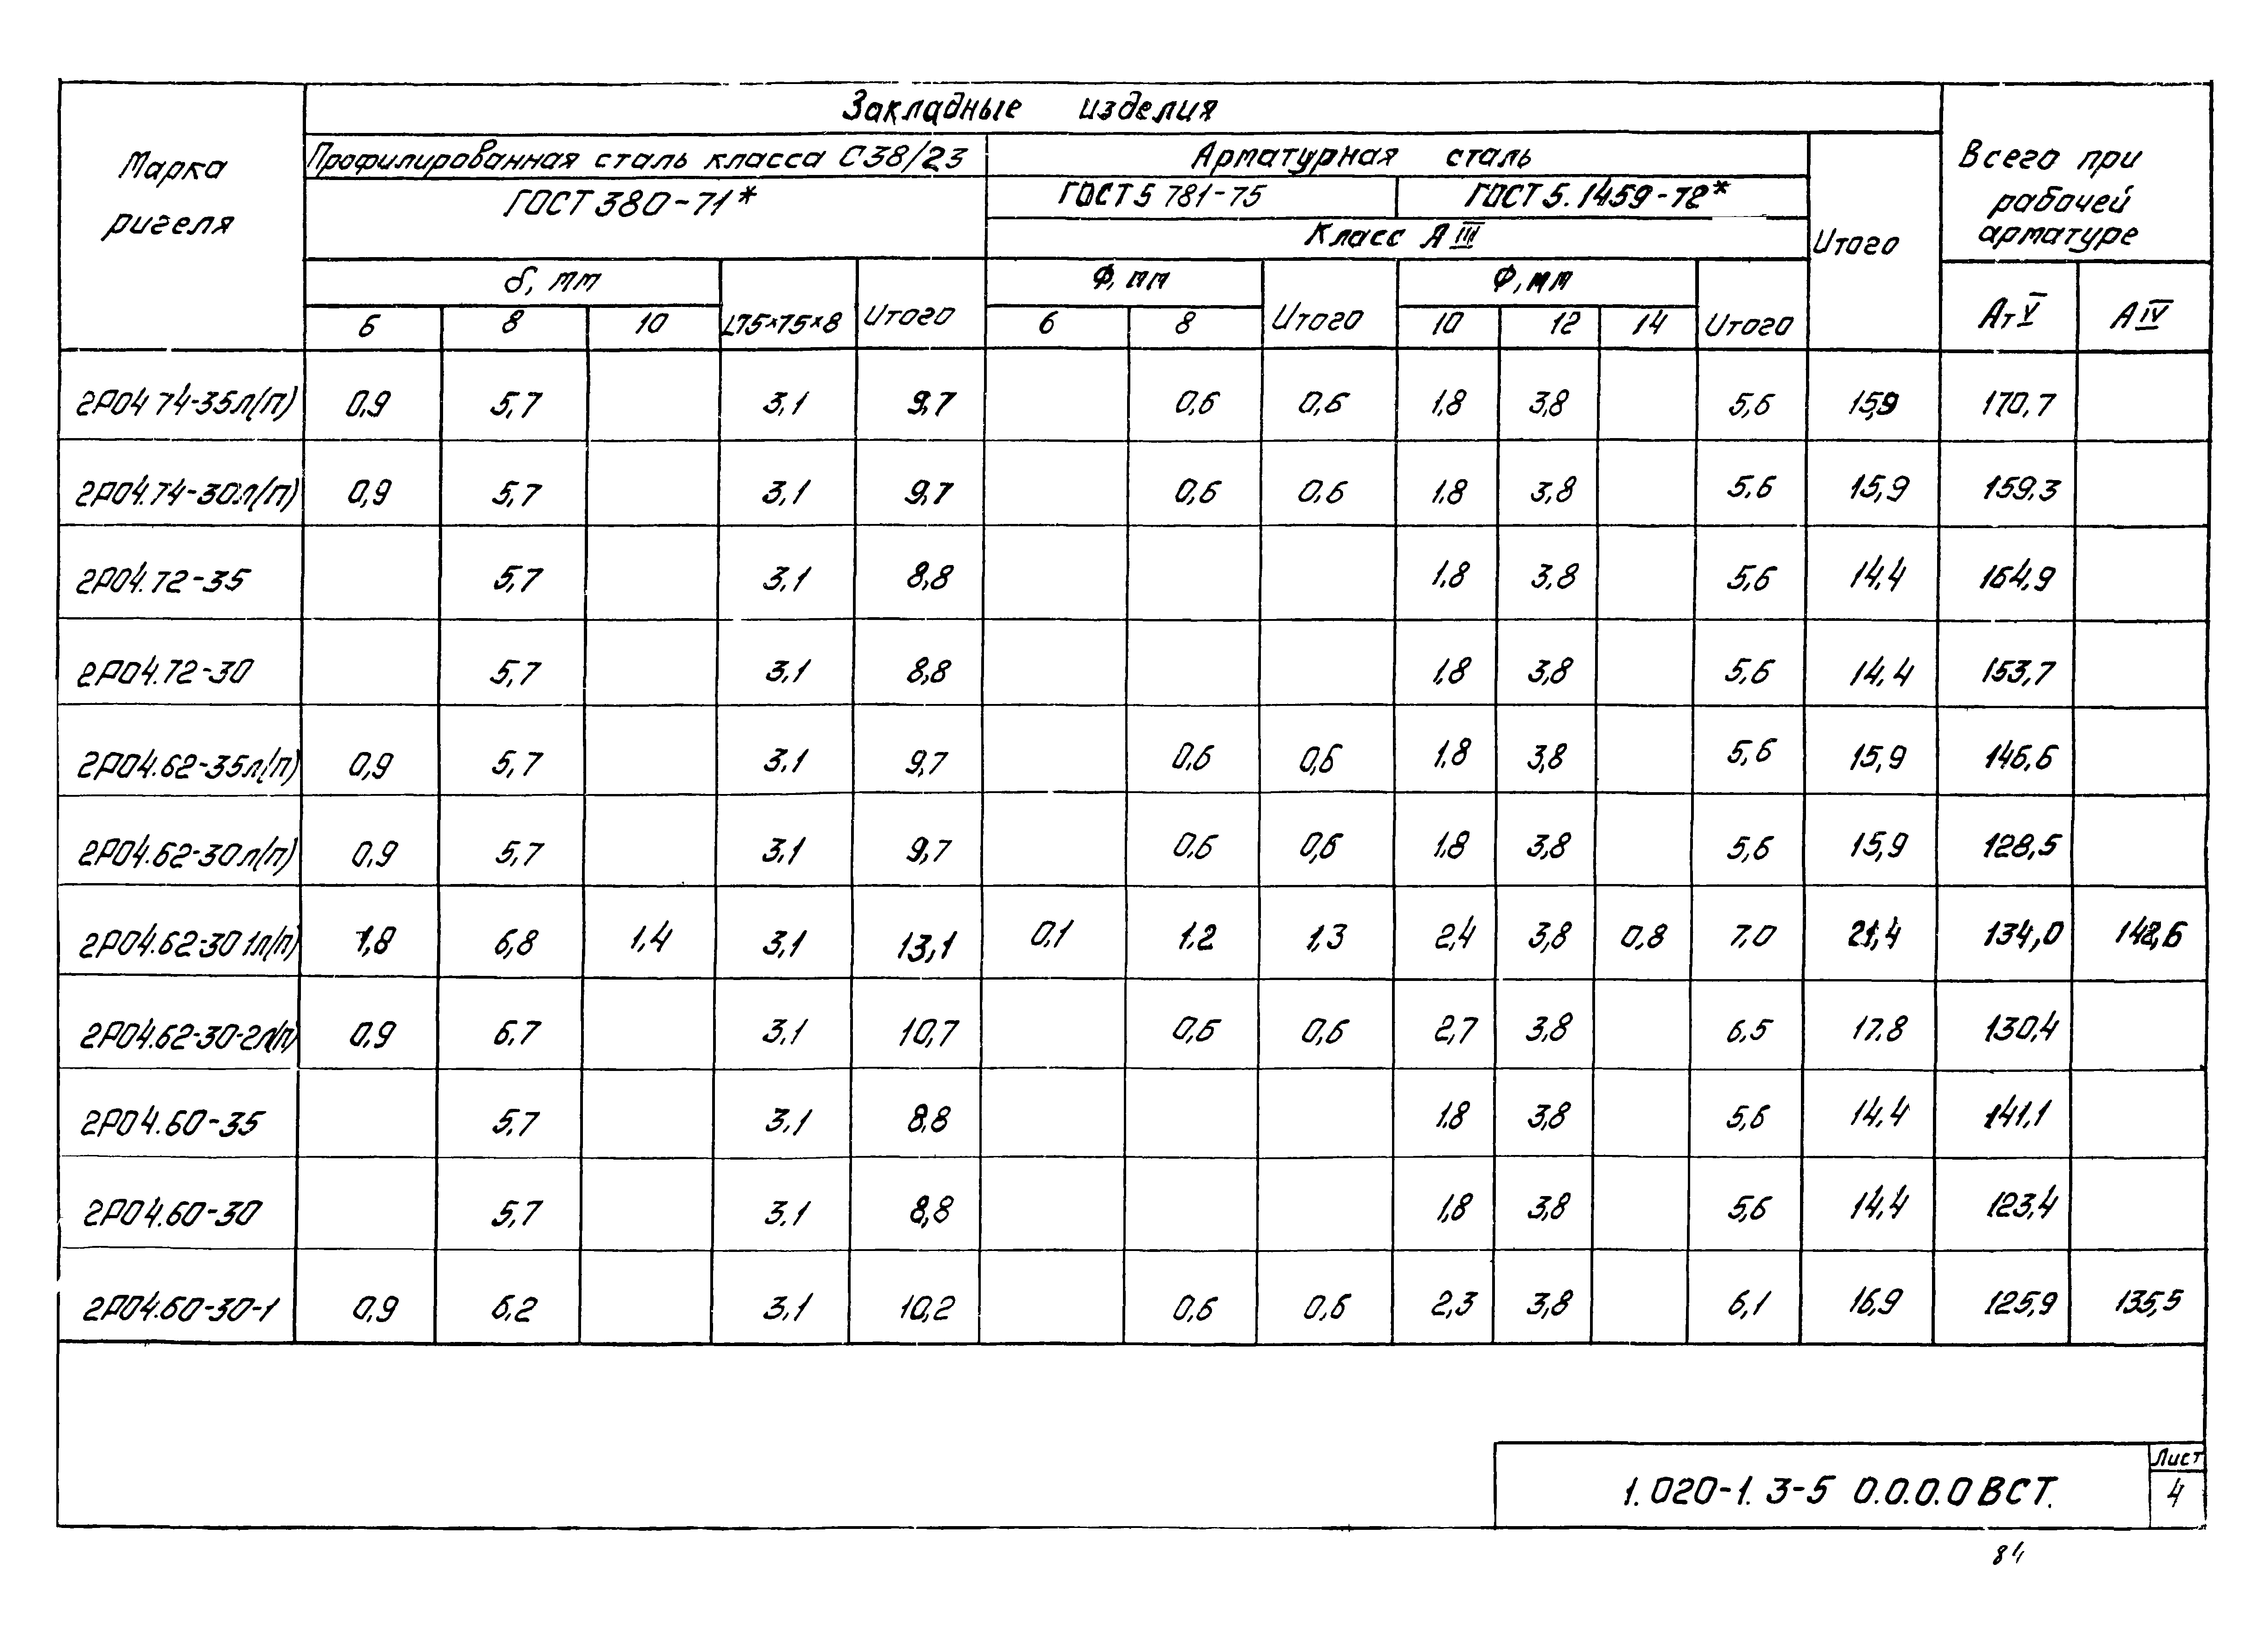 Закладные изделия
Марка ригеля
Профилированная сталь класса С38/23
Арматурная сталь
Всего при рабочей арматуре
ГОСТ 380-71*
ГОСТ 5 781-75
ГОСТ 5.1459-72*
Класс А III
Итого
δ, мм
L75×75×8
Итого
Ф, мм
Итого
Ф, мм
Итого
Ат V
А IV
6 8 10 6 8 10 12 14
2Р04 74-35л(п) 0,9 5,7 3,1 9,7 0,6 0,6 1,8 3,8 5,6 15,9 170,7
2Р04.74-30л(п) 0,9 5,7 3,1 9,7 0,6 0,6 1.8 3,8 5,6 15,9 159,3
2Р04.72-35 5,7 3,1 8,8 1,8 3,8 5,6 14,4 164,9
2Р04.72-30 5,7 3,1 8,8 1,8 3,8 5,6 14,4 153,7
2Р04.62-35л(п) 0,9 5,7 3,1 9,7 0,6 0,6 1,8 3,8 5,6 15,9 146,6
2Р04.62-30л(п) 0,9 5,7 3,1 9,7 0,6 0,6 1,8 3,8 5,6 15,9 128,5
2Р04.62-30 1л(п) 1,8 6,8 1,4 3,1 13,1 0,1 1.2 1,3 2,4 3,8 0,8 7.0 21,4 134,0 142,6
2Р04.62-30-2л(п) 0,9 6,7 3,1 10,7 0,6 0,6 2,7 3,8 6,5 17.8 130,4
2Р04.60-35 5,7 3,1 8,8 1,8 3,8 5,6 14,4 141,1
2Р04.60-30 5,7 3,1 8,8 1,8 3,8 5,6 14,4 123,4
2Р04.60-30-1 0,9 6,2 3,1 10,2 0,6 0,6 2,3 3,8 6,1 16,9 125,9 135,5
1.020-1. 3-5 0.0.0.0 ВСТ.
Лист
4
84